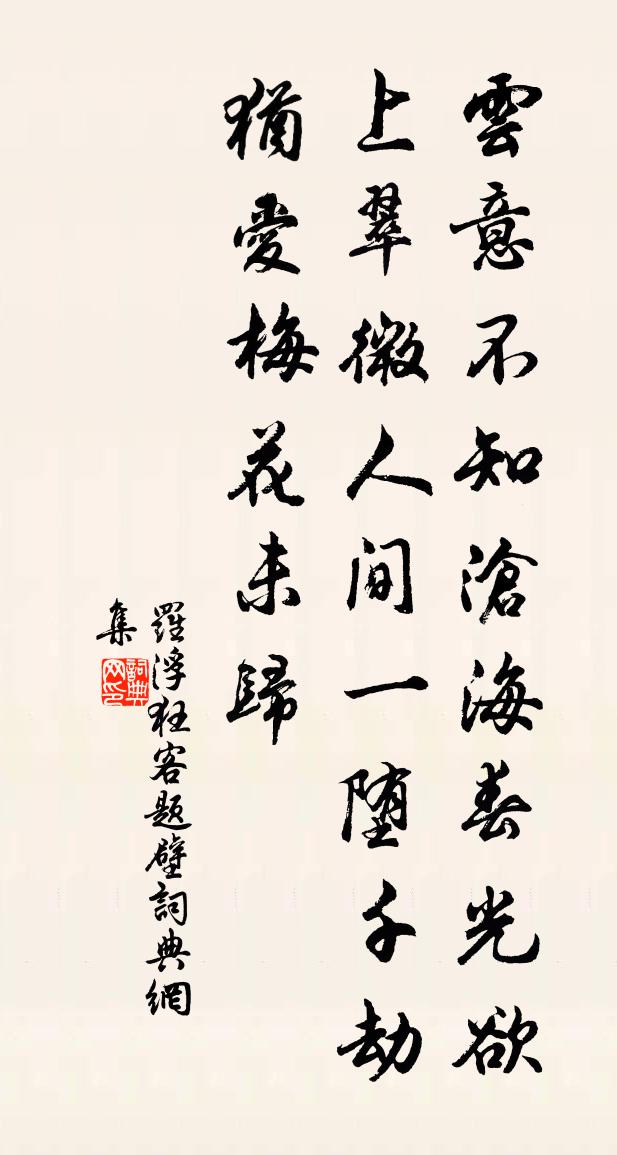 雲意不知滄海春光欲
上翠微人間一堕千劫
猶愛梅花未歸
羅浮狂客題壁詞典網
集
詞典
网印